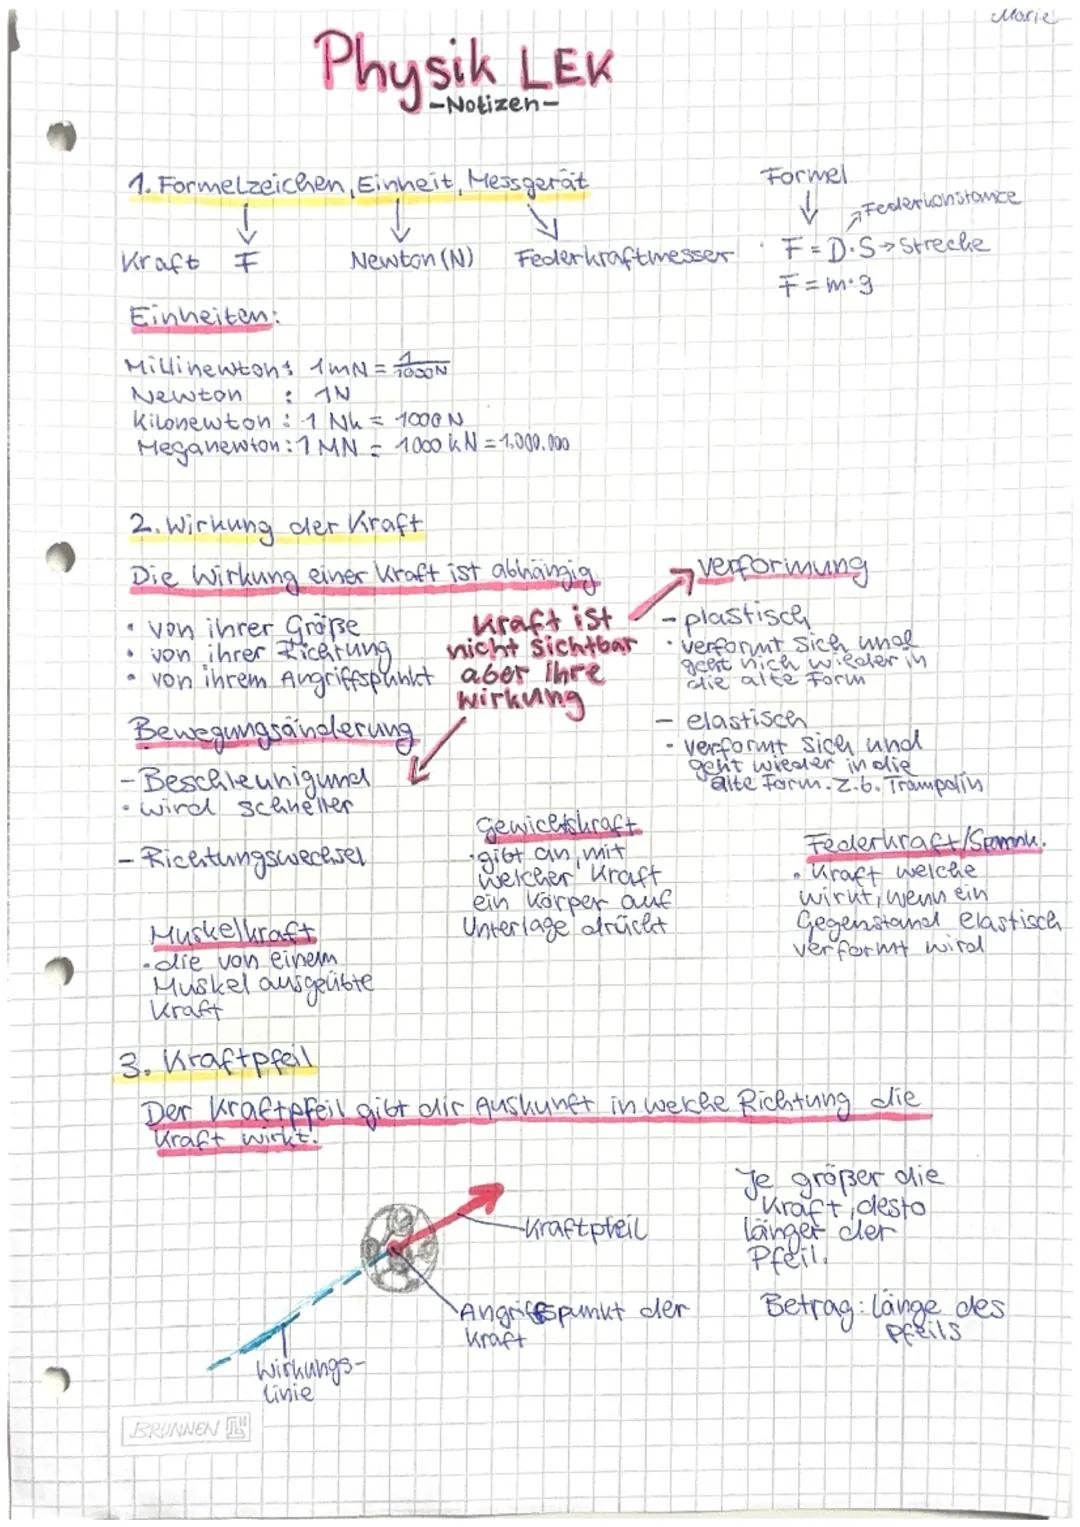 Marie
Physik LEK
-Notizen-
1. Formelzeichen, Einheit, Messgerät
Kraft F
Newton (N)
Federkraftmesser
Formel
Federkonstante
F = D·S → Strecke
F = m·g
Einheiten:
Millinewton: 1mN = 1/1000N
Newton : 1N
Kilonewton : 1 Nk = 1000 N
Meganewton: 1 MN = 1000 kN = 1.000.000
2. Wirkung der Kraft
Die Wirkung einer Kraft ist abhängig
• von ihrer Größe
• von ihrer Richtung
• von ihrem Angriffspunkt
Kraft ist
nicht sichtbar
aber ihre
wirkung
verformung
- plastisch
· verformt sich und
geht nich wieder in
die alte Form
- elastisch
- verformt sich und
geht wieder in die
alte Form. z.b. Trampolin
Bewegungsänderung
- Beschleunigund
• wird schneller
- Richtungswechsel
Gewichtskraft
· gibt an, mit
welcher Kraft
ein Körper auf
Unterlage drückt
Federkraft/Spannk.
• Kraft welche
wirkt, wenn ein
Gegenstand elastisch
verformt wird
Muskelkraft
• die von einem
Muskel ausgeübte
Kraft
3. Kraftpfeil
Der Kraftpfeil gibt dir Auskunft in welche Richtung die
Kraft wirkt.
Kraftpfeil
Angriffspunkt der
Kraft
Wirkungs-
linie
Je größer die
Kraft, desto
länger der
Pfeil.
Betrag: länge des
Pfeils
BRUNNEN